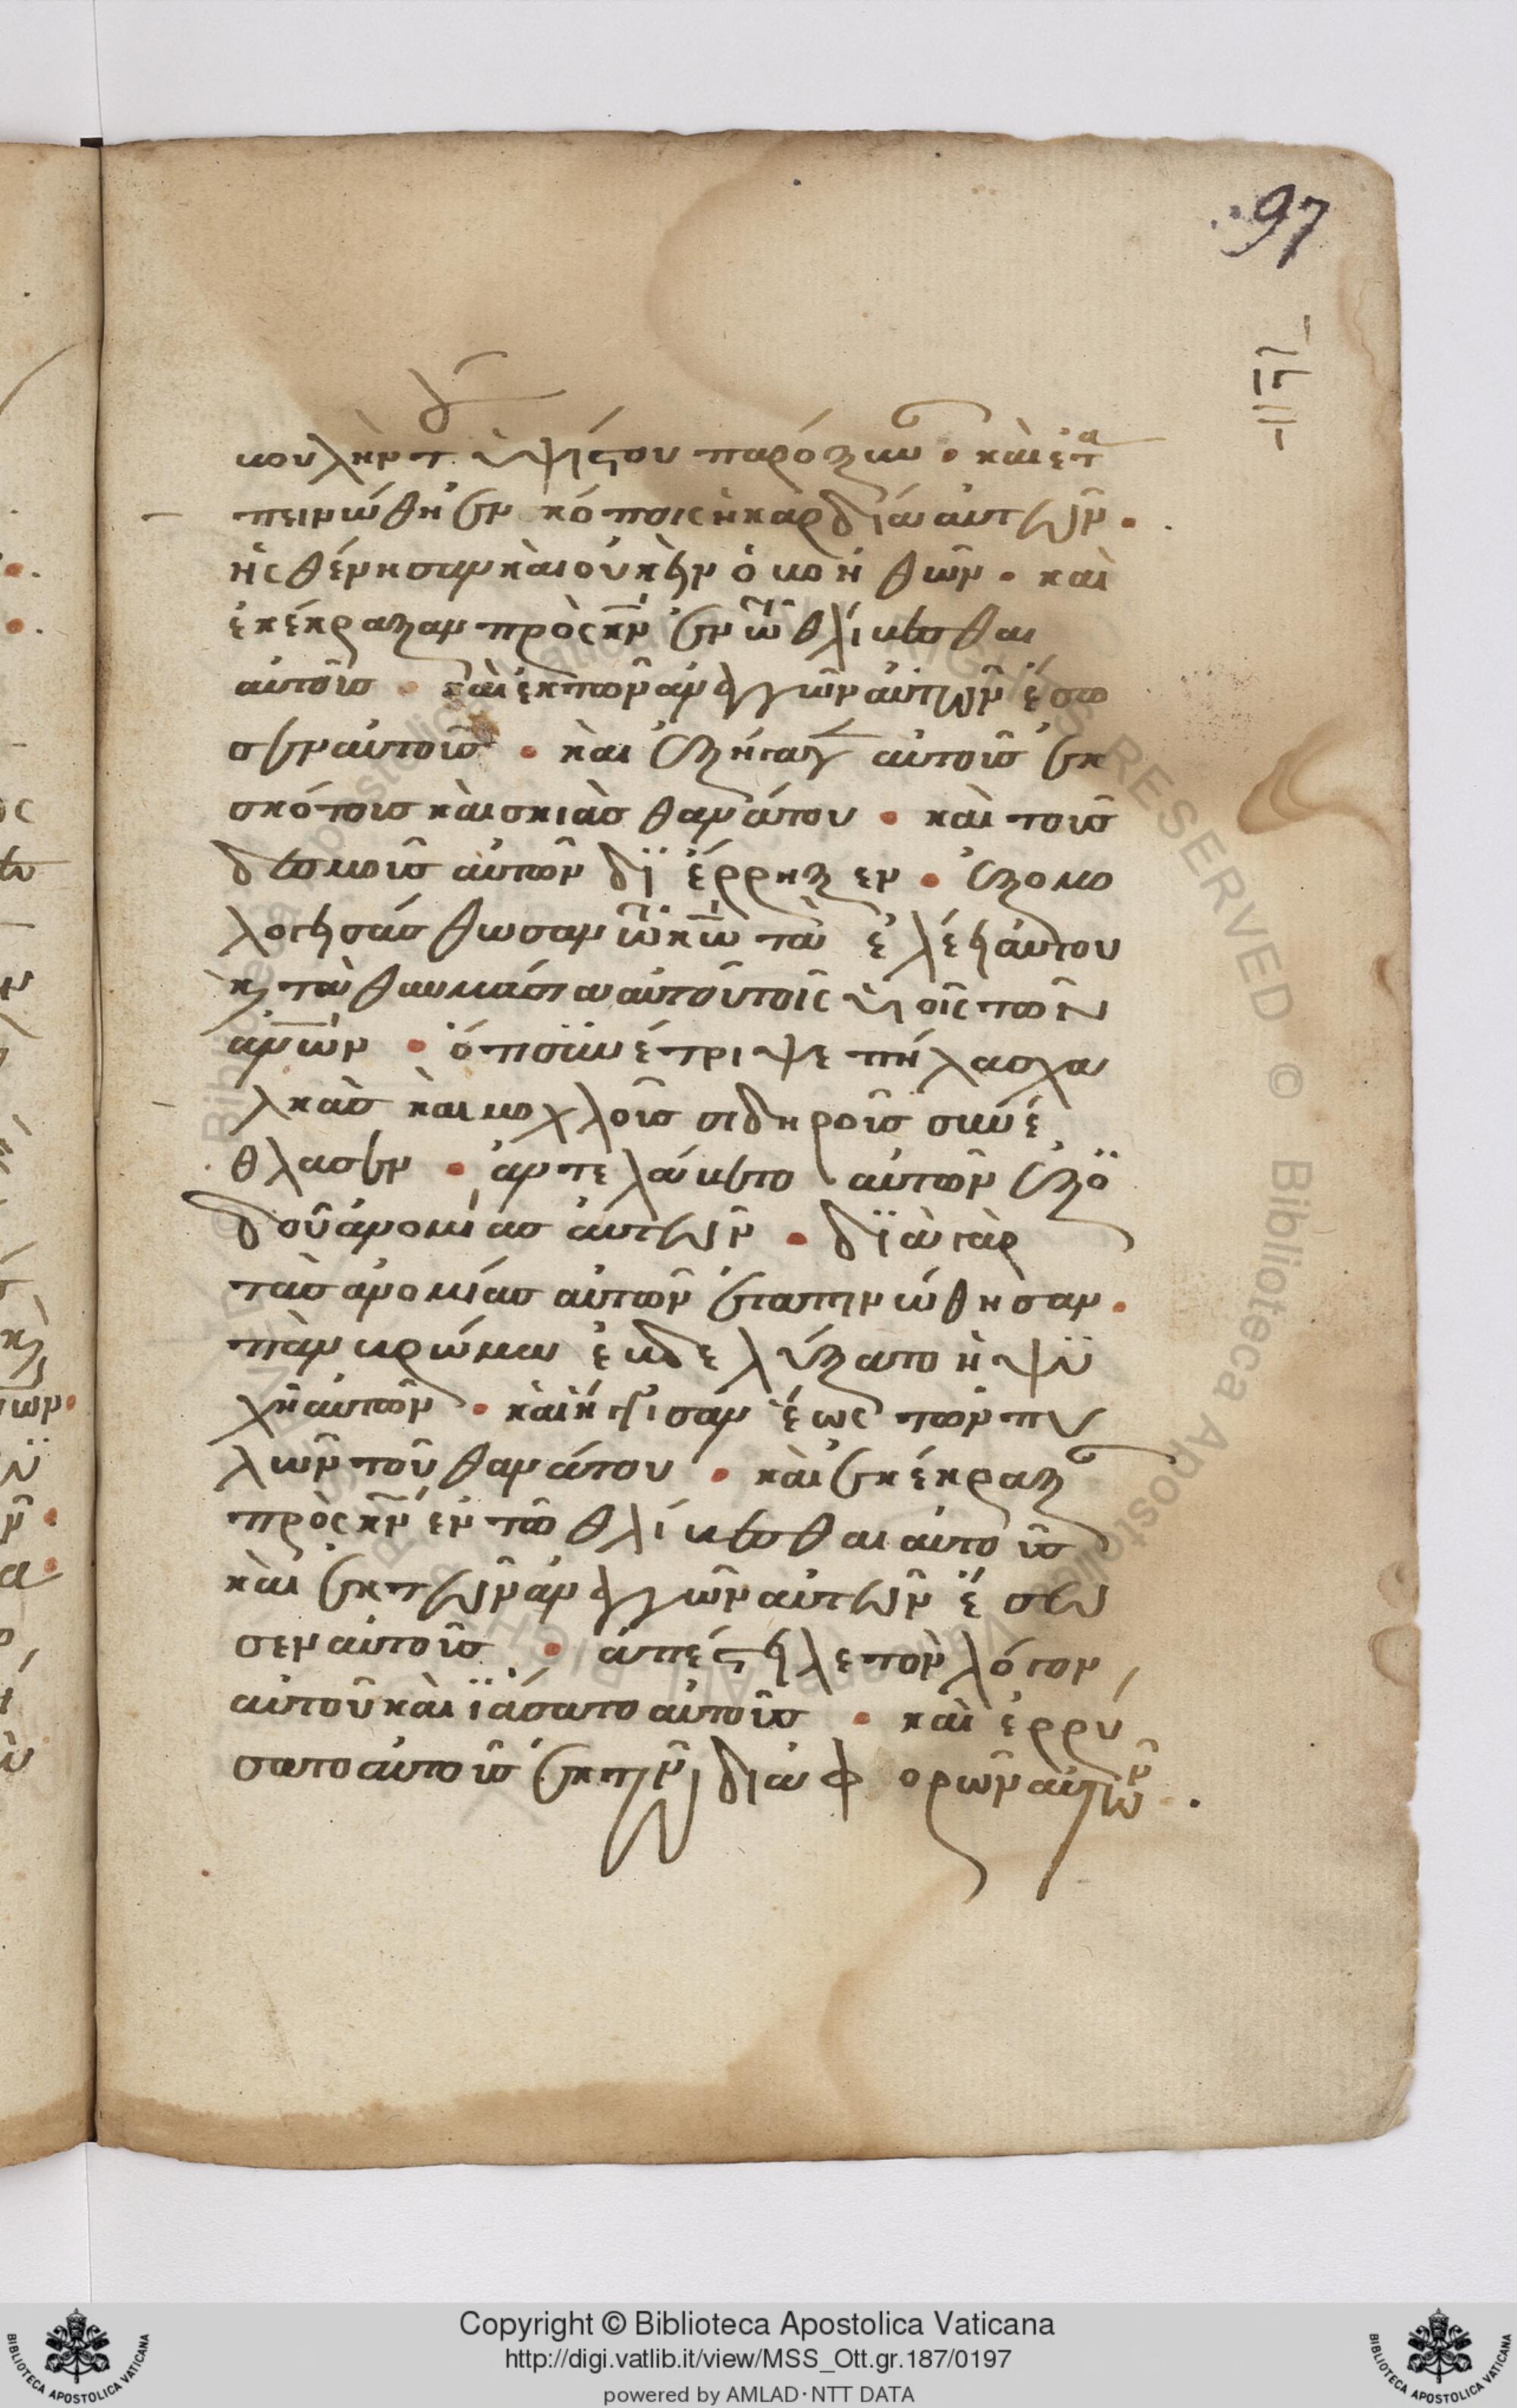 97
κουλὴν τ ὑψίστου παρόξυναν · καὶ ἐτα
πεινώθη ἐν κόποις ἡ καρδία αὐτῶν ·
ἠσθένησαν καὶ οὐκ ἦν ὁ βοηθῶν · καὶ
ἐκέκραξαν πρὸς κν ἐν τῶ θλίβεσθαι
αὐτοῖς · καὶ ἐκ τῶν ἀναγκῶν αὐτῶν ἔσω
σεν αὐτοὺς · καὶ ἐξήγαγεν αὐτοῖς ἐκ
σκότοις καὶ σκιᾶς θανάτου · καὶ τοῖς
δεσμοῖς αὐτῶν διέρρηξεν · ἐξομο
λογησάσθωσαν τῶ κω τὰ ἐλέη αὐτοῦ
κ τὰ θαυμάσια αὐτοῦ τοῖς υἱοῖς τῶν
ανων · ὅτι συνέτριψε πύλας χα
λκᾶς καὶ μοχλοῖς σιδηροῖς συνέ
θλασεν · ἀντελάβετο αὐτῶν ἐξ ὁ
δοῦ ἀνομίας αὐτῶν · διὰ γὰρ
τὰς ἀνομίας αὐτῶν ἐταπινώθησαν ·
πᾶν βρώμα ἐβδελύξατο ἡ ψυ
χὴ αὐτῶν · καὶ ἤγγισαν ἕως τῶν πυ
λῶν τοῦ θανάτου · καὶ ἐκέκραξαν
πρὸς κν ἐν τῶ θλίβεσθαι αὐτοῖς
καὶ ἐκ τῶν ἀναγκῶν αὐτῶν ἔσω
σεν αὐτοῖς · ἀπέστηλε τὸν λόγον
αὐτοῦ καὶ ἰάσατο αὐτοῖς · καὶ ἐρρύ
σατο αὐτοῖς ἐκ τῶν διαφορῶν αὐτῶν ·
Copyright © Biblioteca Apostolica Vaticana
http://digi.vatlib.it/view/MSS_Ott.gr.187/0197
powered by AMLAD·NTT DATA